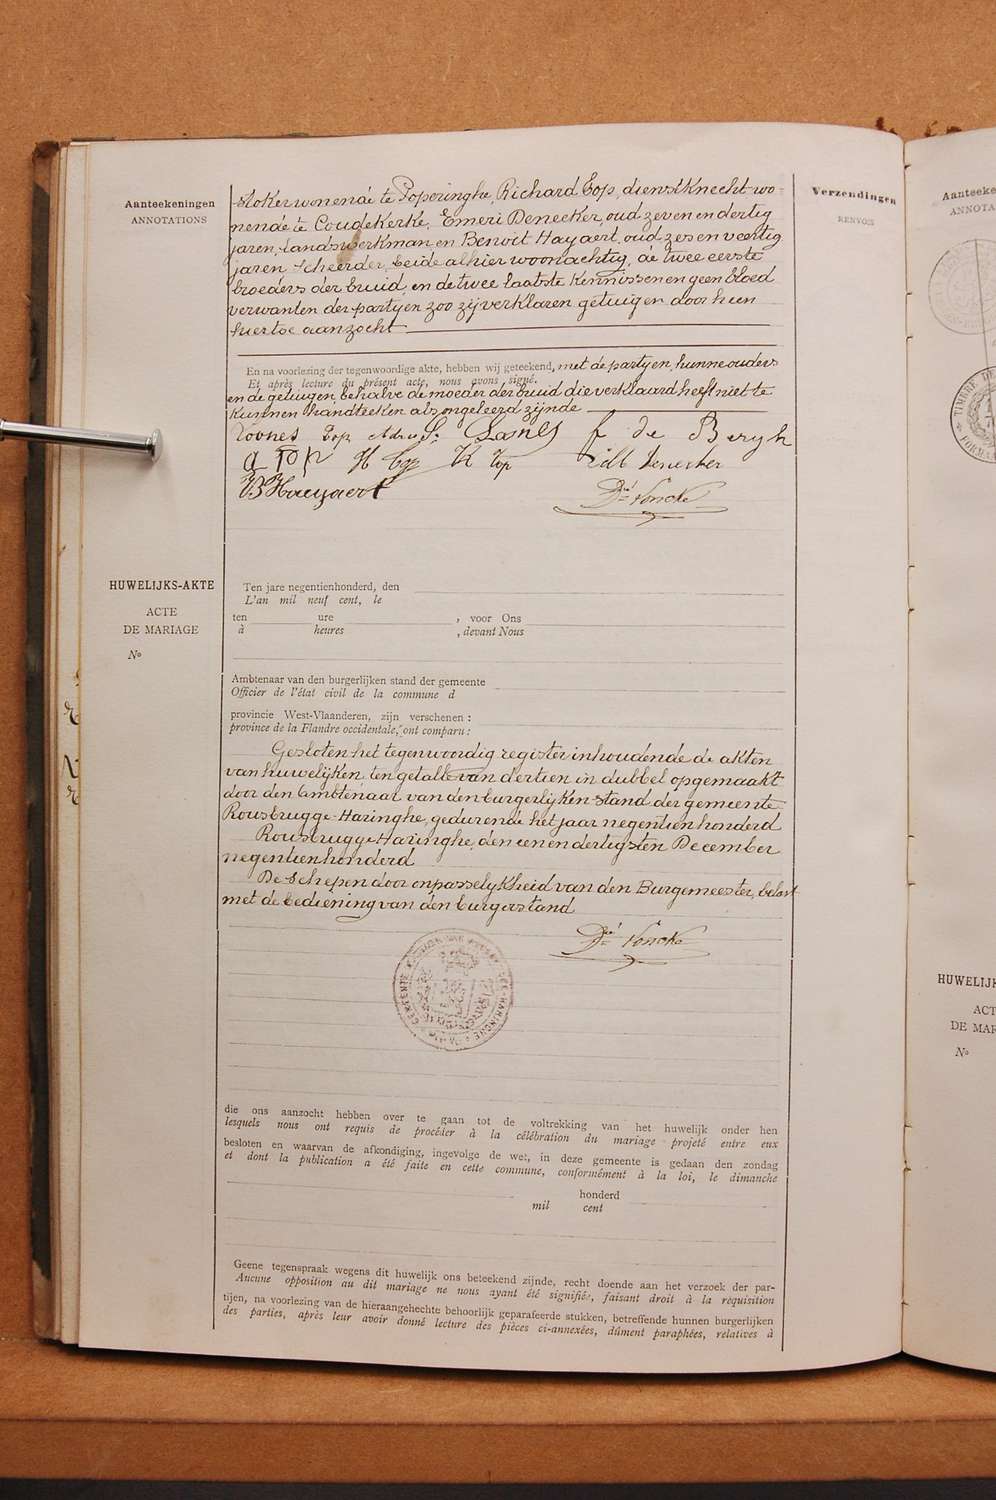 Aanteekeningen
ANNOTATIONS
Verzendingen
RENVOIS
stoker wonende te Poperinghe, Richard Top, dienstknecht wo-
nende te Coudekerke, Emeri Denecker, oud zeven en dertig
jaren, landswerkman en Benoit Hayaert, oud zes en veertig
jaren scheerder, beide alhier woonachtig, de twee eerste
broeders der bruid, en de twee laatste kennissen en geen bloed
verwanten der partyen zoo zij verklaren getuigen door hen
hiertoe aanzocht
En na voorlezing der tegenwoordige akte, hebben wij geteekend, met de partyen, hunne ouders
Et après lecture du présent acte, nous avons signé.
en de getuigen, behalve de moeder der bruid die verklaard heeft niet te
kunnen handteeken als ongeleerd zijnde
Top f de Bergh
a Top H Top K Top
B Haeyaert Dré Voncke
HUWELIJKS-AKTE
ACTE
DE MARIAGE
No
Ten jare negentienhonderd, den
L'an mil neuf cent, le
ten ure , voor Ons
à heures , devant Nous
Ambtenaar van den burgerlijken stand der gemeente
Officier de l'état civil de la commune d
provincie West-Vlaanderen, zijn verschenen :
province de la Flandre occidentale, ont comparu :
Gesloten het tegenwoordig register inhoudende de akten
van huwelijken ten getalle van dertien in dubbel opgemaakt
door den ambtenaar van den burgerlijken stand der gemeente
Rousbrugge-Haringhe, gedurende het jaar negentienhonderd
Rousbrugge-Haringhe, den een en dertigsten December
negentienhonderd
De schepen door onpasselykheid van den Burgemeester, belast
met de bediening van den burgerstand
Dré Voncke
die ons aanzocht hebben over te gaan tot de voltrekking van het huwelijk onder hen
lesquels nous ont requis de procéder à la célébration du mariage projeté entre eux
besloten en waarvan de afkondiging, ingevolge de wet, in deze gemeente is gedaan den zondag
et dont la publication a été faite en cette commune, conformément à la loi, le dimanche
honderd
mil cent
Geene tegenspraak wegens dit huwelijk ons beteekend zijnde, recht doende aan het verzoek der par-
Aucune opposition au dit mariage ne nous ayant été signifiée, faisant droit à la réquisition
tijen, na voorlezing van de hieraangehechte behoorlijk geparafeerde stukken, betreffende hunnen burgerlijken
des parties, après leur avoir donné lecture des pièces ci-annexées, dûment paraphées, relatives à
Aanteeke
ANNOTA
TIMBRE DE
HUWELIJK
ACT
DE MAR
No